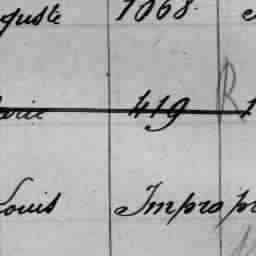 guste 1068.
arie 419 R 1
Louis Impropr